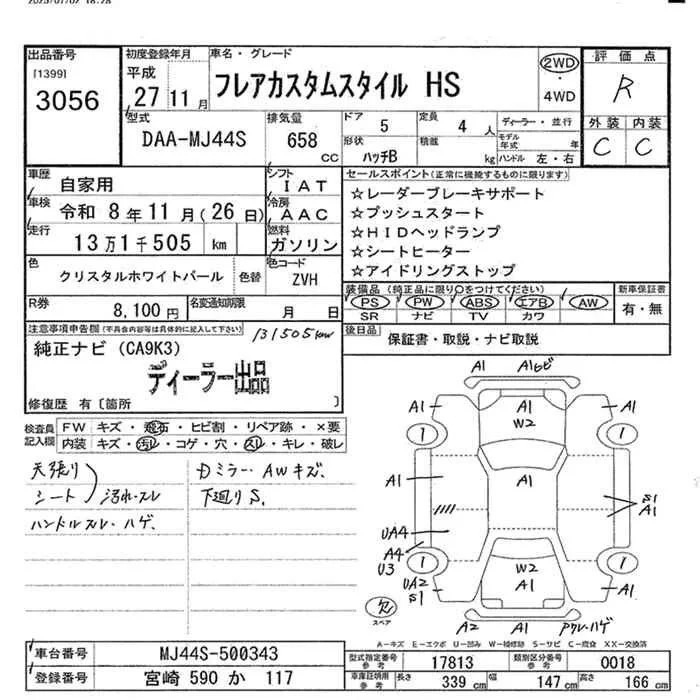 2025/01/02 18:28
出品番号
[1399]
3056
初度登録年月
平成
27 11 月
車名・グレード
フレアカスタムスタイル HS
2WD
・
4WD
評価点
R
外装 内装
C C
型式
DAA-MJ44S
排気量
658 cc
ドア 5
形状 ハッチB
定員 4 人
積載 kg
ディーラー・並行
モデル年式 年
ハンドル 左・右
車歴 自家用
シフト IAT
車検 令和 8年11月(26日)
冷房 AAC
走行 13万1千505 km
燃料 ガソリン
色 クリスタルホワイトパール
色替
色コード ZVH
R券 8,100円
名変通知期限 月 日
セールスポイント(正常に機能するものに限ります)
☆レーダーブレーキサポート
☆プッシュスタート
☆HIDヘッドランプ
☆シートヒーター
☆アイドリングストップ
装備品(純正品に限り○をつけてください)
PS PW ABS エアB AW
SR ナビ TV カワ
新車保証書
有・無
後日品 保証書・取説・ナビ取説
注意事項申告欄(不具合内容等は具体的に記入して下さい)
131505km
純正ナビ (CA9K3)
ディーラー出品
修復歴 有〔箇所 〕
検査員記入欄
FW キズ・飛石・ヒビ割・リペア跡・×要
内装 キズ・汚レ・コゲ・穴・スレ・キレ・破レ
天張り
シート 汚れ・スレ
ハンドルスレ・ハゲ
Dミラー・AWキズ
下廻りS.
A1 A1ヒビ
A1 A1 A1
W2
1 1
A1 A1
S1
A1
UA4
A4
U3
W2
1 1
UA2
S1
A1 A1
欠
スペア
A2 A1 アクレ・ハゲ
A－キズ E－エクボ U－凹み W－補修跡 S－サビ C－腐食 XX－交換済
車台番号 MJ44S-500343
登録番号 宮崎 590 か 117
型式指定番号 参考 17813
類別区分番号 参考 0018
車庫証明用 参考 長さ 339 cm 幅 147 cm 高さ 166 cm